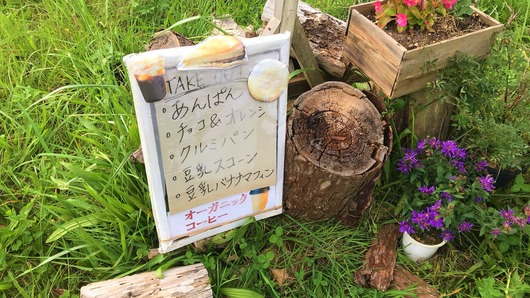 TAKE OUT
・あんぱん
・チョコ&オレンジ
・クルミパン
・豆乳スコーン
・豆乳バナナマフィン
オーガニック
コーヒー